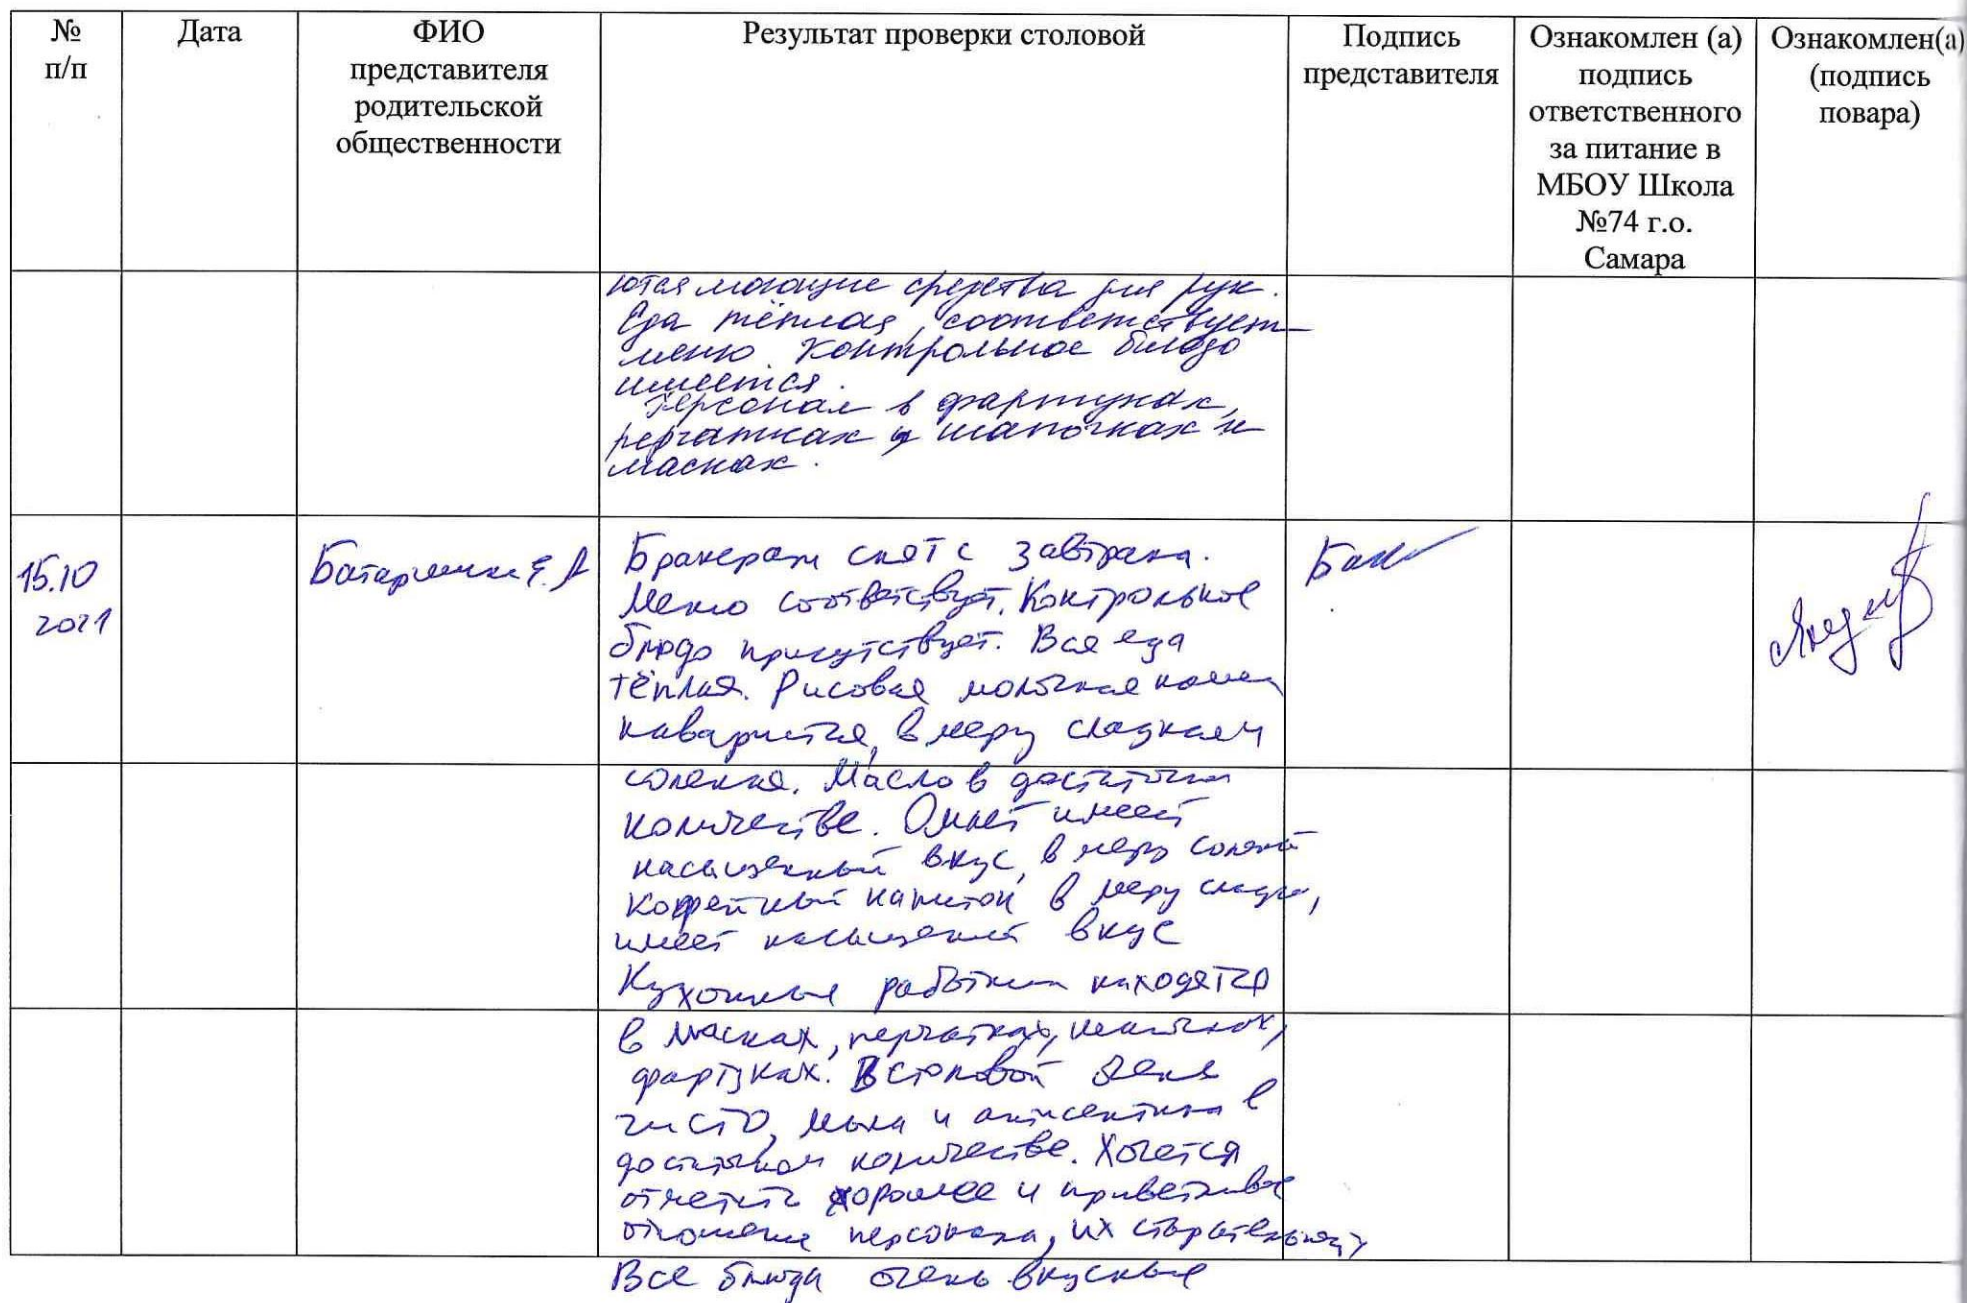 № п/п
Дата
ФИО представителя родительской общественности
Результат проверки столовой
Подпись представителя
Ознакомлен (а) подпись ответственного за питание в МБОУ Школа №74 г.о. Самара
Ознакомлен(а) (подпись повара)
ются моющие средства для рук.
Еда тёплая, соответствует
меню. Контрольное блюдо
имеется.
Персонал в фартуках,
перчатках и шапочках и
масках.
15.10
2021
Батаршина Е. А
Бракераж снят с завтрака.
Меню соответствует. Контрольное
блюдо присутствует. Вся еда
тёплая. Рисовая молочная каша
наваристая, в меру сладкая и
соленая. Масло в достаточном
количестве. Омлет имеет
насыщенный вкус, в меру соленый
кофейный напиток в меру сладкий,
имеет насыщенный вкус
Кухонные работники находятся
в масках, перчатках, шапочках,
фартуках. В столовой очень
чисто, мыла и антисептика в
достаточном количестве. Хочется
отметить хорошее и приветливое
отношение персонала, их
Все блюда очень вкусные